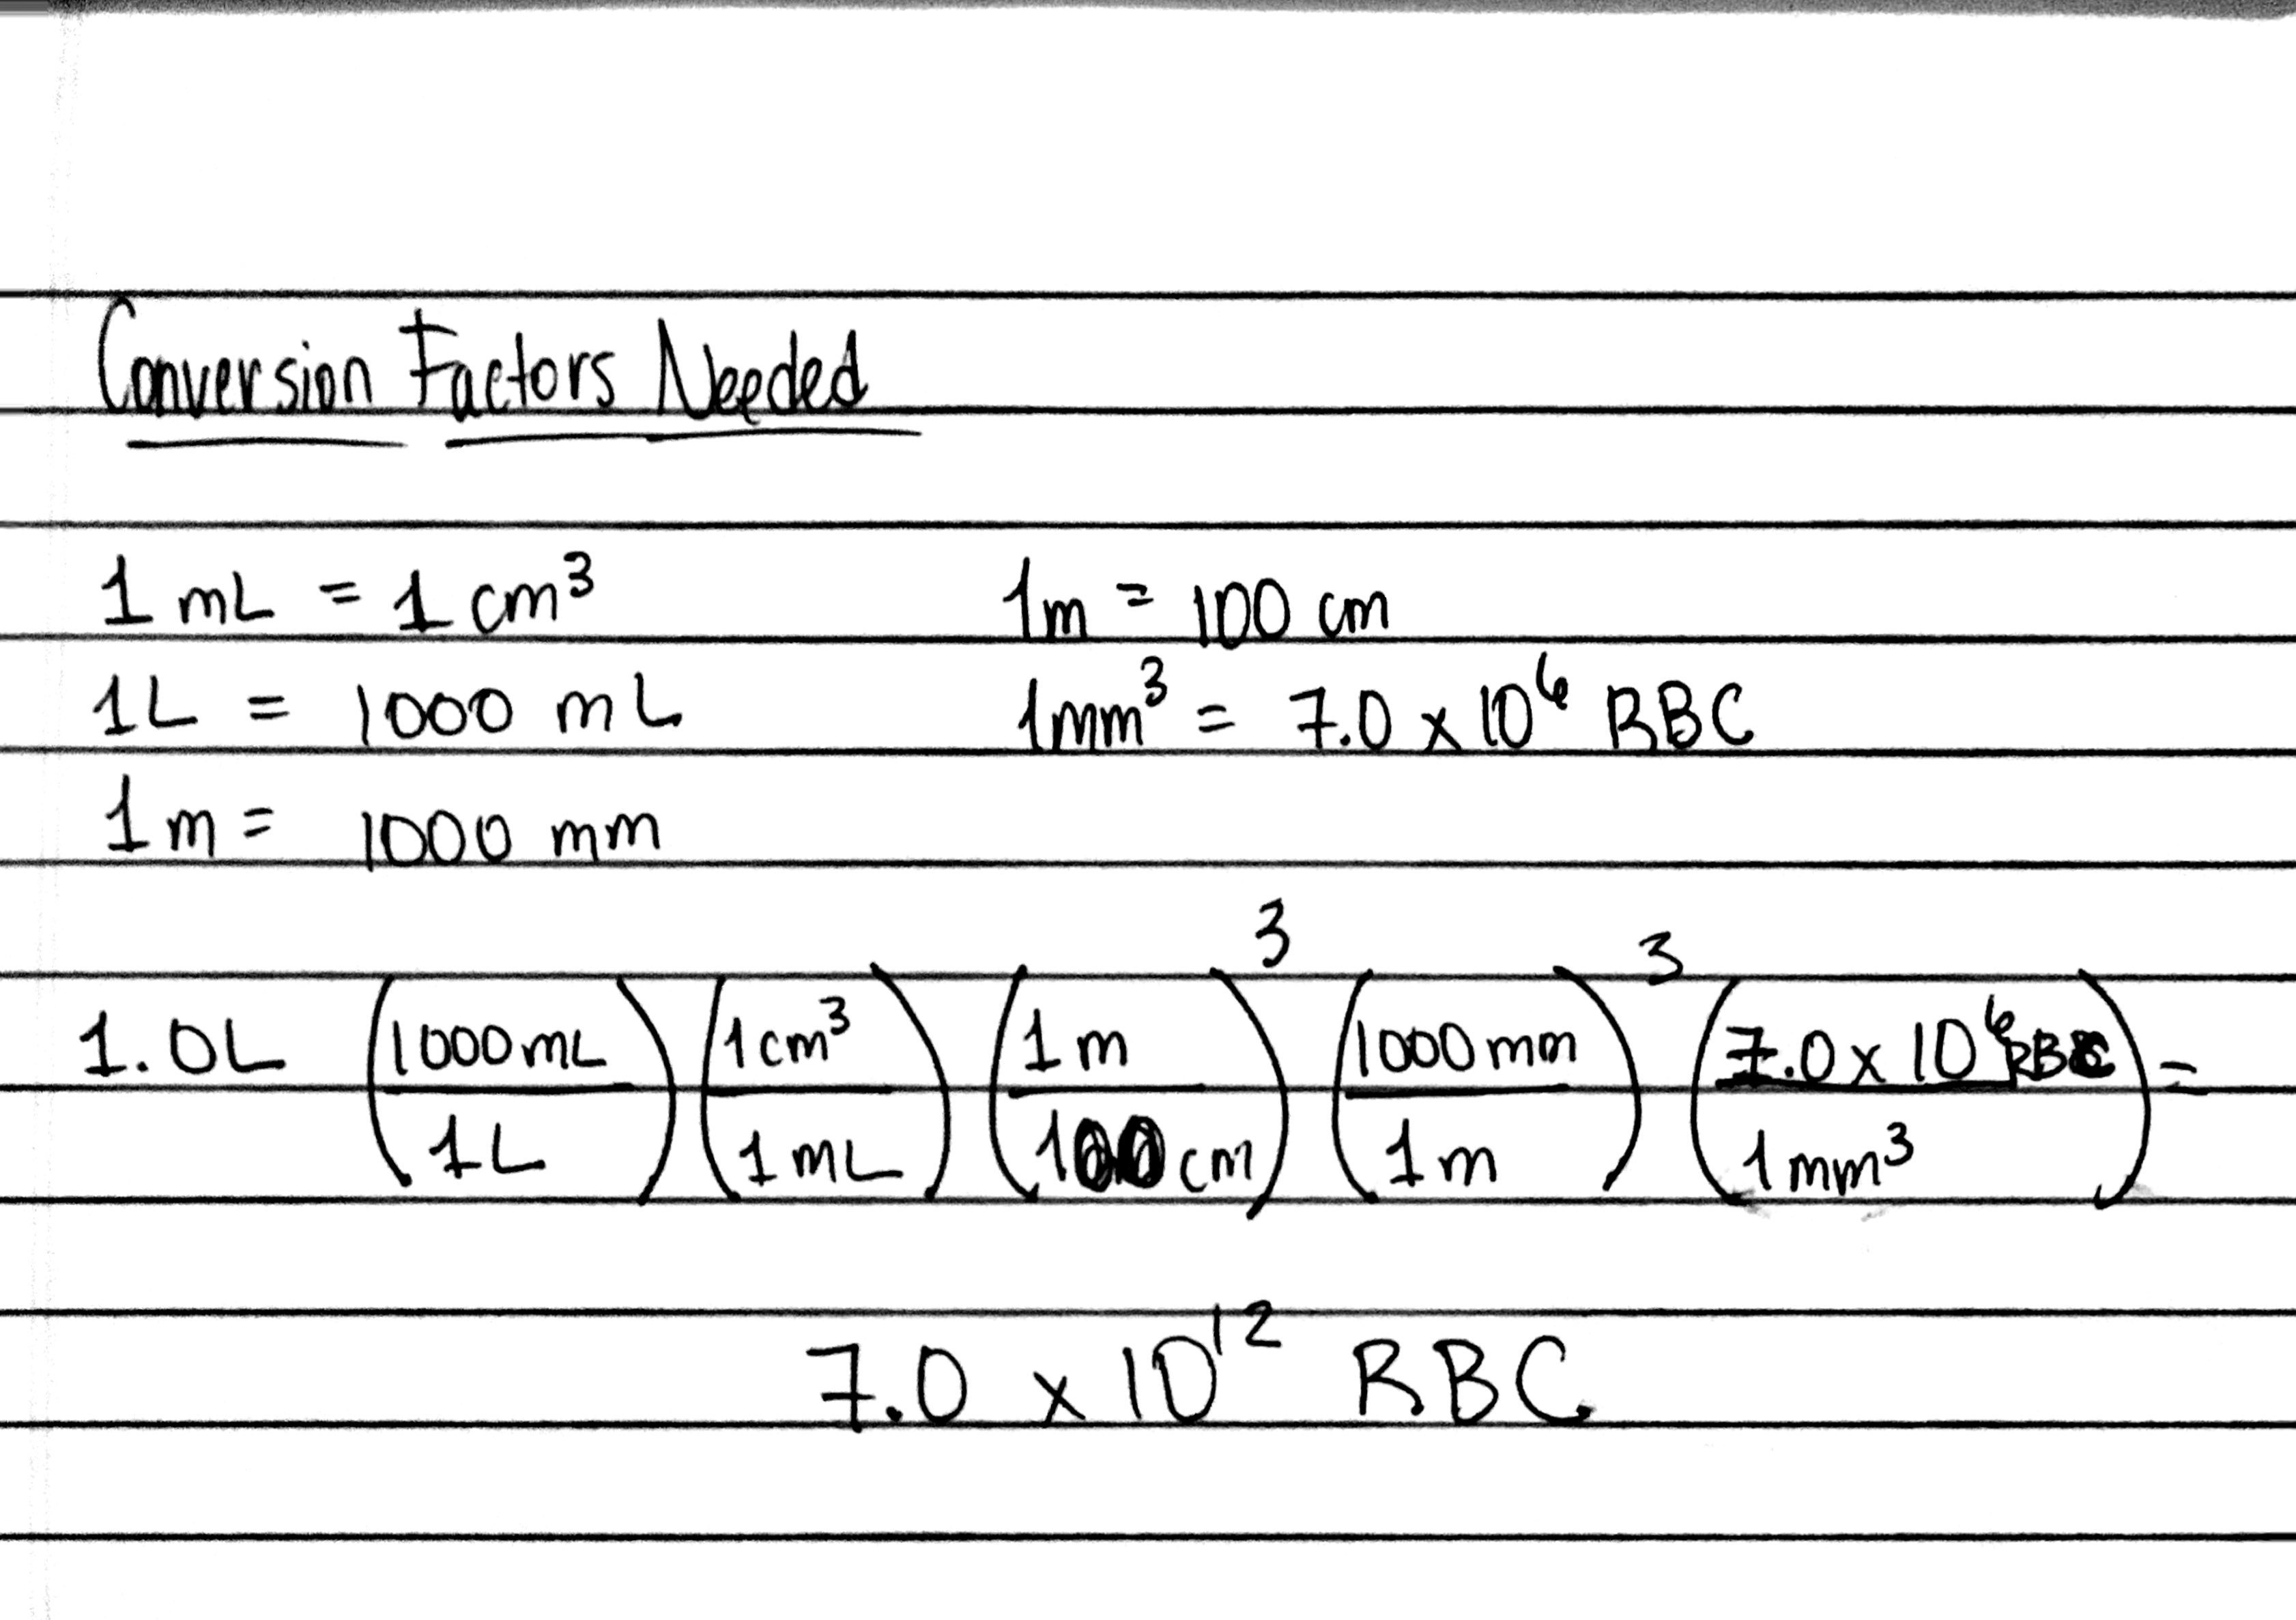 Conversion Factors Needed
1 mL = 1 cm³ 1m = 100 cm
1L = 1000 mL 1mm³ = 7.0 x 10⁶ RBC
1m = 1000 mm
1.0L (1000mL/1L) (1cm³/1mL) (1m/100cm)³ (1000mm/1m)³ (7.0x10⁶RBC/1mm³) =
7.0 x 10¹² RBC